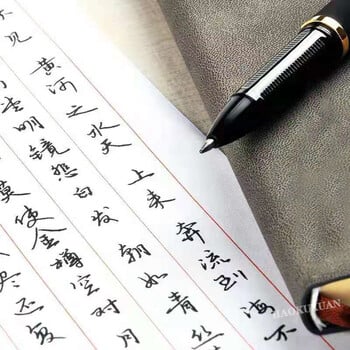 不见黄河之水天上来奔流到海不
堂明镜悲白发朝如青丝
莫使金樽空对月
尽还复
HAOKUXUAN